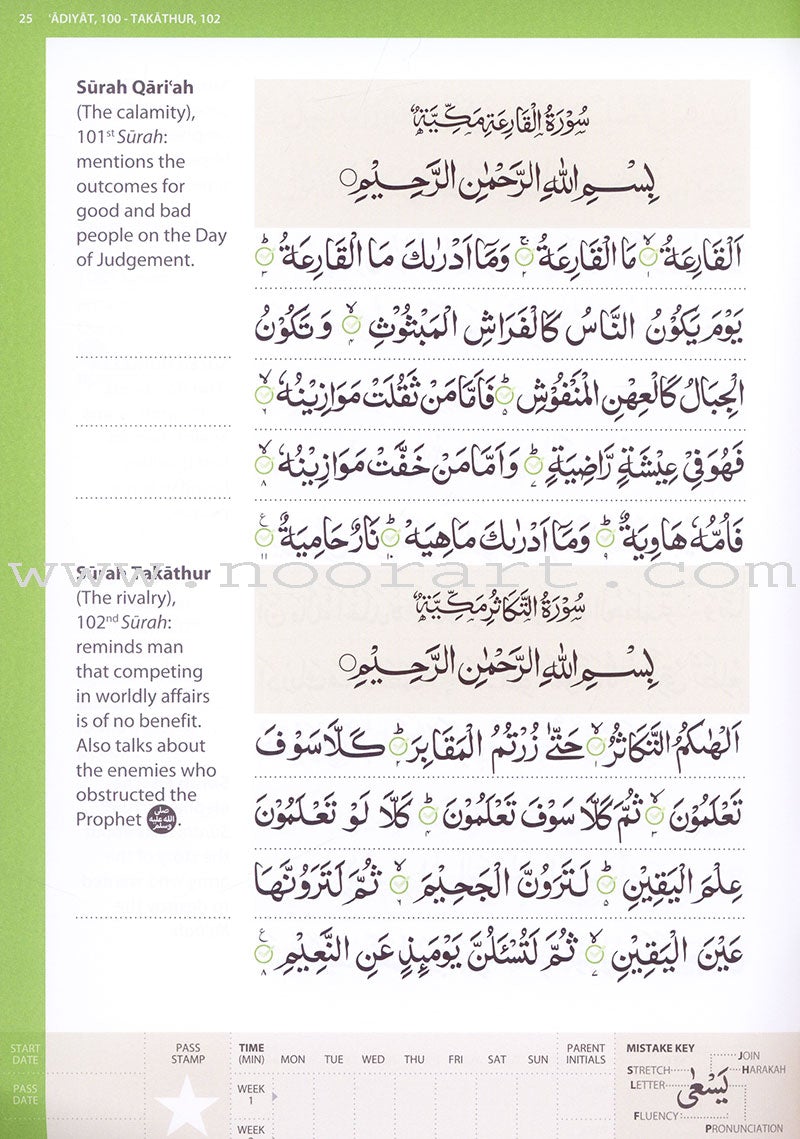 25 ʿĀDIYĀT, 100 - TAKĀTHUR, 102
Sūrah Qāriʿah
(The calamity),
101st Sūrah:
mentions the
outcomes for
good and bad
people on the Day
of Judgement.
سُوْرَةُ الْقَارِعَةِ مَكِّيَّةٌ
بِسْمِ اللهِ الرَّحْمٰنِ الرَّحِيْمِ
اَلْقَارِعَةُ ۙ١ مَا الْقَارِعَةُ ۚ٢ وَمَاۤ اَدْرٰىكَ مَا الْقَارِعَةُ ؕ٣
يَوْمَ يَكُوْنُ النَّاسُ كَالْفَرَاشِ الْمَبْثُوْثِ ۙ٤ وَ تَكُوْنُ
الْجِبَالُ كَالْعِهْنِ الْمَنْفُوْشِ ؕ٥ فَاَمَّا مَنْ ثَقُلَتْ مَوَازِيْنُهٗ ۙ٦
فَهُوَ فِيْ عِيْشَةٍ رَّاضِيَةٍ ؕ٧ وَاَمَّا مَنْ خَفَّتْ مَوَازِيْنُهٗ ۙ٨
فَاُمُّهٗ هَاوِيَةٌ ؕ٩ وَمَاۤ اَدْرٰىكَ مَاهِيَهْ ؕ١٠ نَارٌ حَامِيَةٌ ۧ١١
www.noorart.com
Sūrah Takāthur
(The rivalry),
102nd Sūrah:
reminds man
that competing
in worldly affairs
is of no benefit.
Also talks about
the enemies who
obstructed the
Prophet ﷺ.
سُوْرَةُ التَّكَاثُرِ مَكِّيَّةٌ
بِسْمِ اللهِ الرَّحْمٰنِ الرَّحِيْمِ
اَلْهٰىكُمُ التَّكَاثُرُ ۙ١ حَتّٰى زُرْتُمُ الْمَقَابِرَ ؕ٢ كَلَّا سَوْفَ
تَعْلَمُوْنَ ۙ٣ ثُمَّ كَلَّا سَوْفَ تَعْلَمُوْنَ ؕ٤ كَلَّا لَوْ تَعْلَمُوْنَ
عِلْمَ الْيَقِيْنِ ؕ٥ لَتَرَوُنَّ الْجَحِيْمَ ۙ٦ ثُمَّ لَتَرَوُنَّهَا
عَيْنَ الْيَقِيْنِ ۙ٧ ثُمَّ لَتُسْـَٔلُنَّ يَوْمَىِٕذٍ عَنِ النَّعِيْمِ ۧ٨
START DATE
PASS DATE
PASS STAMP
TIME (MIN) MON TUE WED THU FRI SAT SUN PARENT INITIALS
WEEK 1
WEEK
MISTAKE KEY
JOIN
STRETCH HARAKAH
LETTER
يَسْعٰى
FLUENCY
PRONUNCIATION